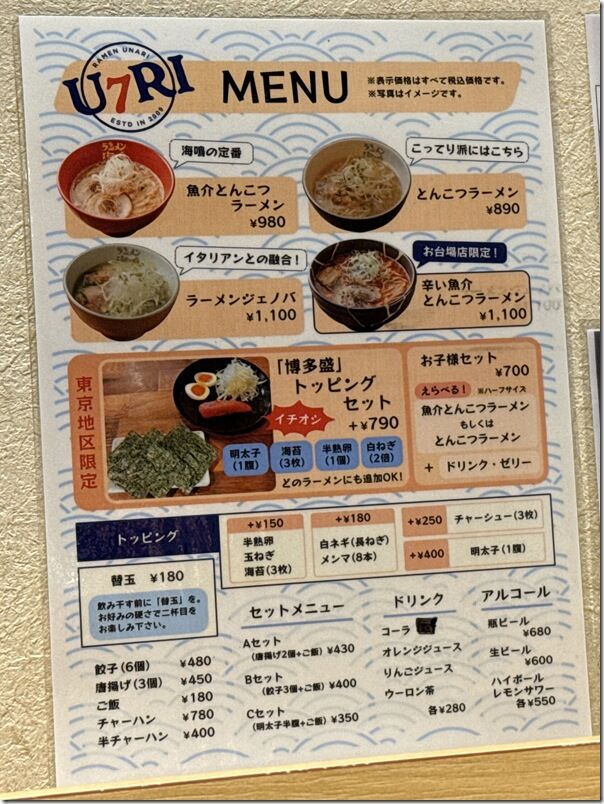 RAMEN UNARI
U7RI
ESTD IN 2009
MENU
※表示価格はすべて税込価格です。
※写真はイメージです。
海鳴の定番
魚介とんこつ
ラーメン
¥980
こってり派にはこちら
とんこつラーメン
¥890
イタリアンとの融合!
ラーメンジェノバ
¥1,100
お台場店限定!
辛い魚介
とんこつラーメン
¥1,100
東京地区限定
「博多盛」
トッピング
セット
イチオシ
+¥790
明太子
(1腹)
海苔
(3枚)
半熟卵
(1個)
白ねぎ
(2倍)
どのラーメンにも追加OK!
お子様セット
¥700
えらべる!
※ハーフサイズ
魚介とんこつラーメン
もしくは
とんこつラーメン
+ ドリンク・ゼリー
トッピング
替玉 ¥180
飲み干す前に「替玉」を。
お好みの硬さで二杯目を
お楽しみ下さい。
+¥150
半熟卵
玉ねぎ
海苔(3枚)
+¥180
白ネギ(長ねぎ)
メンマ(8本)
+¥250 チャーシュー(3枚)
+¥400 明太子(1腹)
餃子(6個) ¥480
唐揚げ(3個) ¥450
ご飯 ¥180
チャーハン ¥780
半チャーハン ¥400
セットメニュー
Aセット
(唐揚げ2個+ご飯) ¥430
Bセット
(餃子3個+ご飯) ¥400
Cセット
(明太子半腹+ご飯) ¥350
ドリンク
コーラ
オレンジジュース
りんごジュース
ウーロン茶
各¥280
アルコール
瓶ビール
¥680
生ビール
¥600
ハイボール
レモンサワー
各¥550